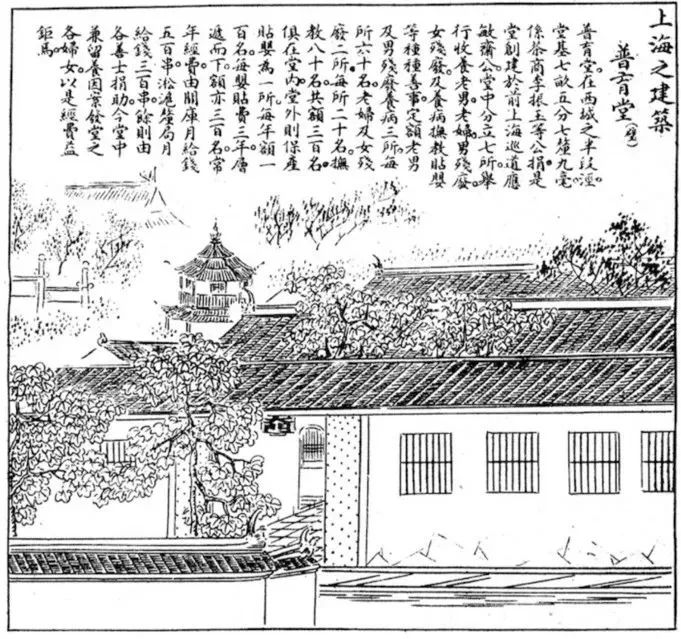 上海之建築
普育堂
普育堂在西城之半段涇。
堂基七畝五分七釐九毫
係茶商李振玉等公捐。是
堂創建於前上海巡道應
敏齋公。堂中分立七所。舉
行收養老男老婦。男殘廢。
女殘廢。及養病撫教貼嬰
等種種善事。定額老男
及男殘廢養病三所。每
所六十名。老婦及女殘
廢二所。每所二十名。撫
教八十名。共額三百名。
俱在堂內。堂外則保產
貼嬰為一所。每年額一
百名。每嬰貼費三年。層
遞而下。額亦三百名。常
年經費。由關庫月給錢
五百串。淞滬釐局月
給錢三百串。餘則由
各善士捐助。今堂中
兼留養因案發堂之
各婦女。以是經費益
鉅焉。